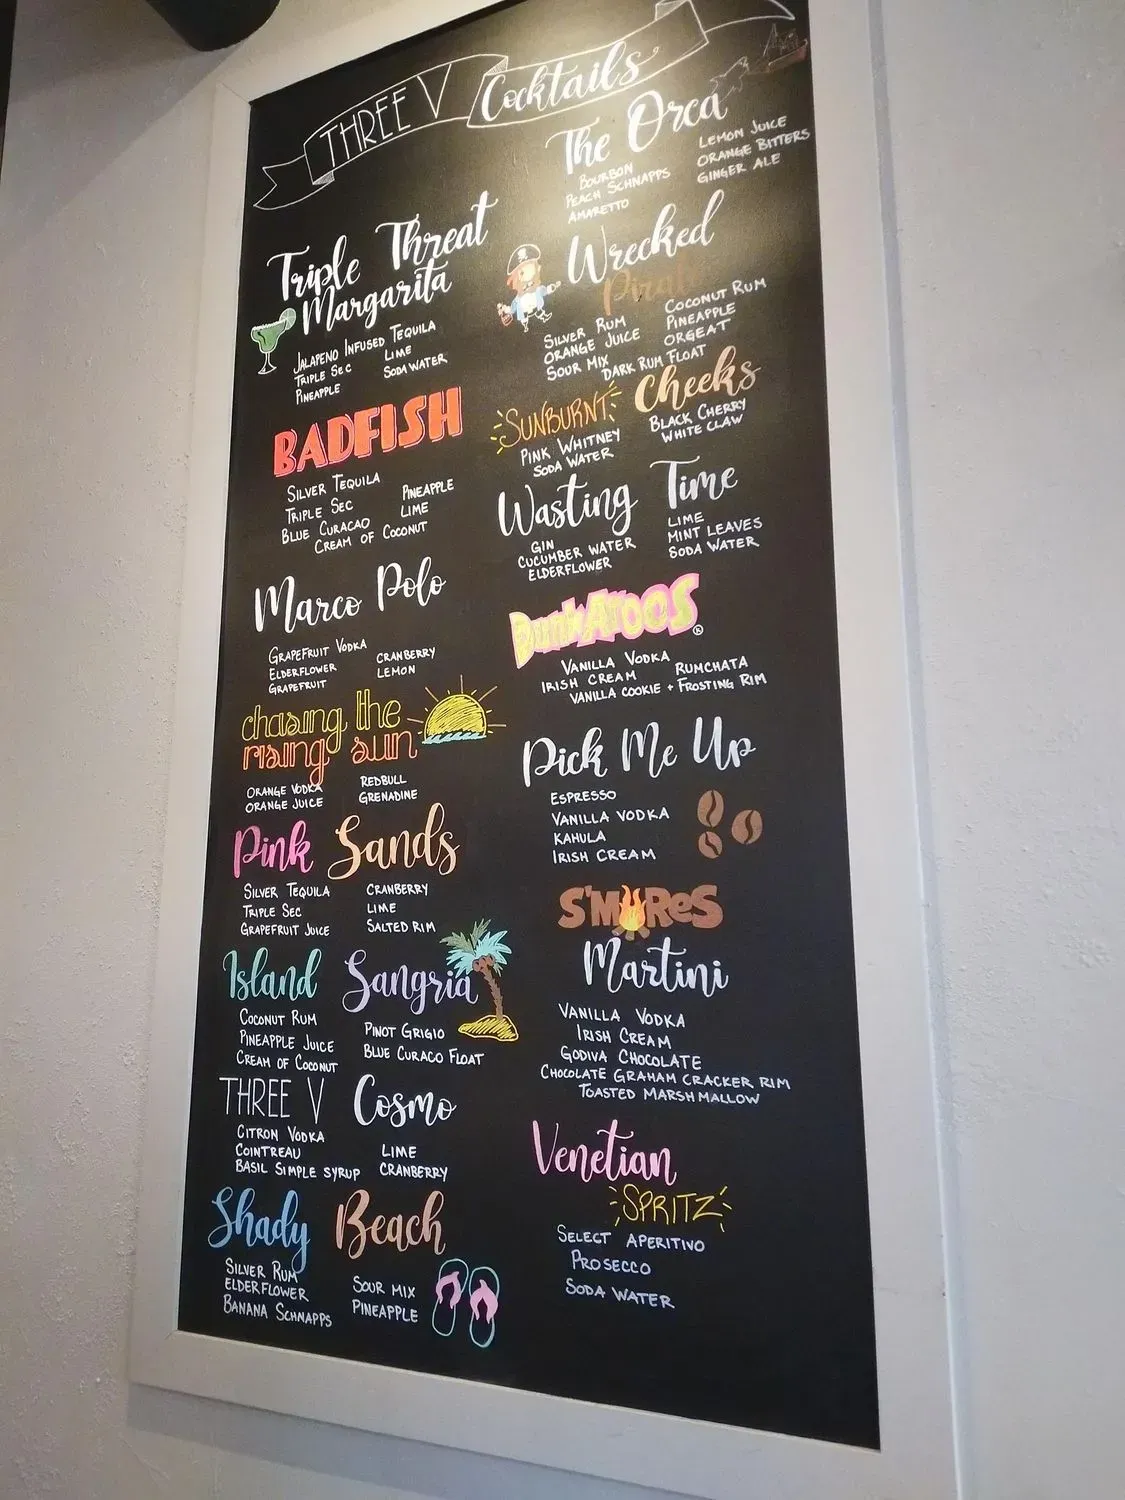 THREE V Cocktails
Triple Threat
Margarita
JALAPENO INFUSED TEQUILA
TRIPLE SEC LIME
PINEAPPLE SODA WATER
BADFISH
SILVER TEQUILA
TRIPLE SEC PINEAPPLE
BLUE CURACAO LIME
CREAM OF COCONUT
Marco Polo
GRAPEFRUIT VODKA
ELDERFLOWER CRANBERRY
GRAPEFRUIT LEMON
chasing the
rising sun
ORANGE VODKA REDBULL
ORANGE JUICE GRENADINE
Pink Sands
SILVER TEQUILA CRANBERRY
TRIPLE SEC LIME
GRAPEFRUIT JUICE SALTED RIM
Island Sangria
COCONUT RUM PINOT GRIGIO
PINEAPPLE JUICE BLUE CURACO FLOAT
CREAM OF COCONUT
THREE V Cosmo
CITRON VODKA
COINTREAU LIME
BASIL SIMPLE SYRUP CRANBERRY
Shady Beach
SILVER RUM
ELDERFLOWER SOUR MIX
BANANA SCHNAPPS PINEAPPLE
The Orca
BOURBON LEMON JUICE
PEACH SCHNAPPS ORANGE BITTERS
AMARETTO GINGER ALE
Wrecked
Pirate
SILVER RUM COCONUT RUM
ORANGE JUICE PINEAPPLE
SOUR MIX ORGEAT
DARK RUM FLOAT
SUNBURNT Cheeks
PINK WHITNEY BLACK CHERRY
SODA WATER WHITE CLAW
Wasting Time
GIN LIME
CUCUMBER WATER MINT LEAVES
ELDERFLOWER SODA WATER
DunkAROOS ®
VANILLA VODKA RUMCHATA
IRISH CREAM
VANILLA COOKIE + FROSTING RIM
Pick Me Up
ESPRESSO
VANILLA VODKA
KAHULA
IRISH CREAM
S'MORES
Martini
VANILLA VODKA
IRISH CREAM
GODIVA CHOCOLATE
CHOCOLATE GRAHAM CRACKER RIM
TOASTED MARSHMALLOW
Venetian
SPRITZ
SELECT APERITIVO
PROSECCO
SODA WATER